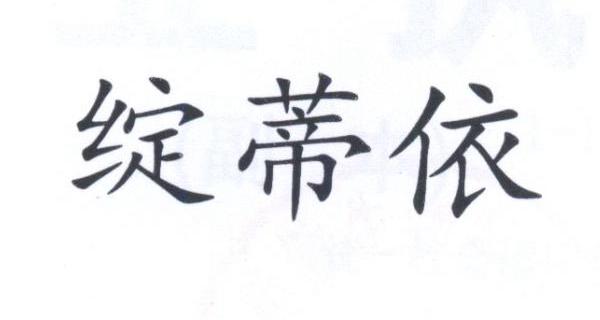 绽蒂依